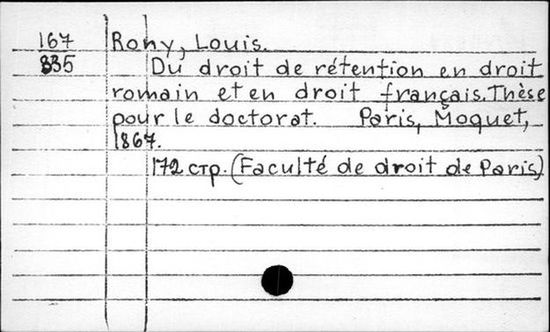 167 Rony, Louis.
835 Du droit de rétention en droit
romain et en droit français. Thèse
pour le doctorat. Paris, Moquet,
1867.
172 стр. (Faculté de droit de Paris)